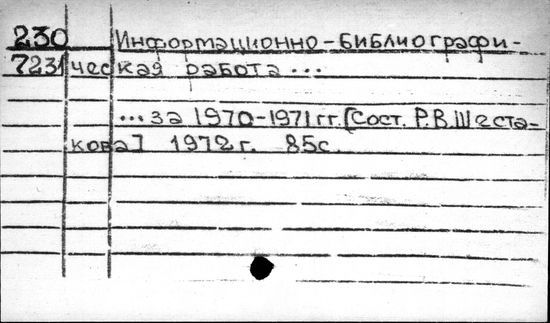 230 Информационно-библиографи-
7231 ческая работа ...
... за 1970-1971 гг. [Сост. Р.В.Шеста-
кова] 1972 г. 85с.